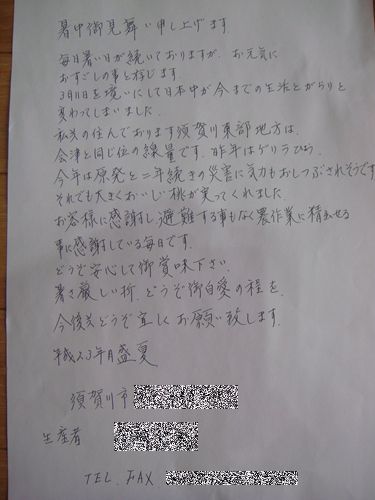 暑中御見舞い申し上げます
毎日暑い日が続いておりますが、お元気に
おすごしの事と存じます。
3月11日を境いにして日本中が今までの生活とがらりと
変わってしまいました。
私共の住んでおります須賀川東部地方は、
会津と同じ位の線量です。昨年はゲリラひょう、
今年は原発と二年続きの災害に気力もおしつぶされそうです
それでも大きくおいしい桃が実ってくれました。
お客様に感謝し避難する事もなく農作業に精だせる
事に感謝している毎日です。
どうぞ安心して御賞味下さい。
暑さ厳しい折、どうぞ御自愛の程を。
今後共どうぞ宜しくお願い致します。
平成23年 盛夏
須賀川市
生産者
TEL. FAX